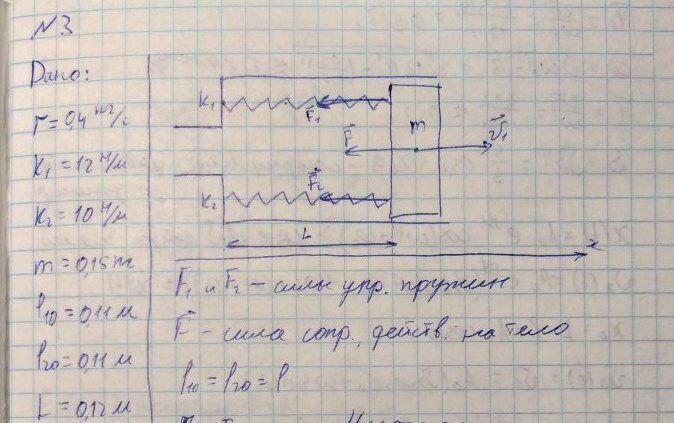 №3
Дано:
r = 0,4 кг/с
K₁ = 12 Н/м
K₂ = 10 Н/м
m = 0,15 кг
l₁₀ = 0,11 м
l₂₀ = 0,11 м
L = 0,12 м
K₁
F₁
m
F
V₁
F₂
K₂
L
x
F₁ и F₂ – силы упр. пружин
F – сила сопр., действ. на тело
l₁₀ = l₂₀ = l